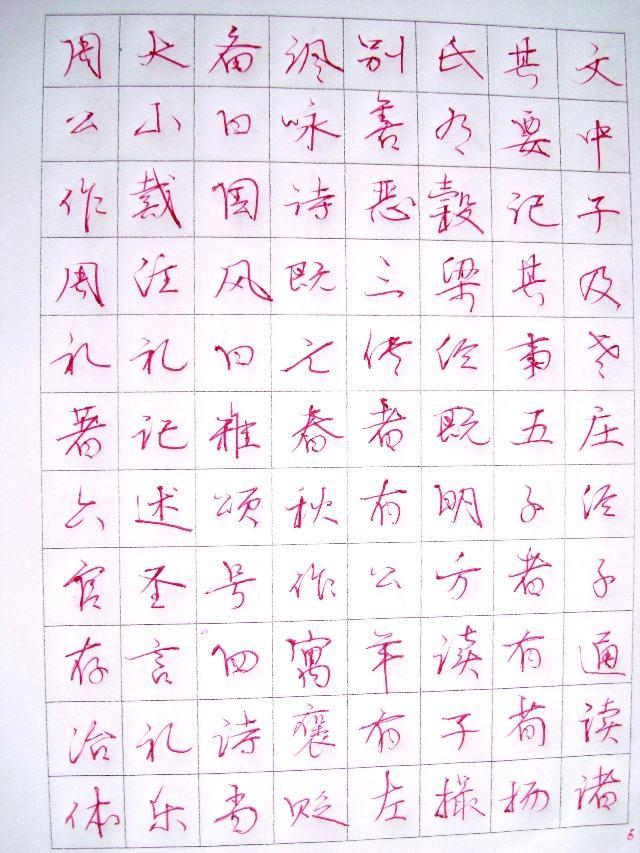 周公作周礼著六官存治体
大小戴注礼记述圣言礼乐
备曰国风曰雅颂号四诗当
讽咏诗既亡春秋作寓褒贬
别善恶三传者有公羊有左
氏有穀梁经既明方读子撮
其要记其事五子者有荀扬
文中子及老庄经子通读诸
6